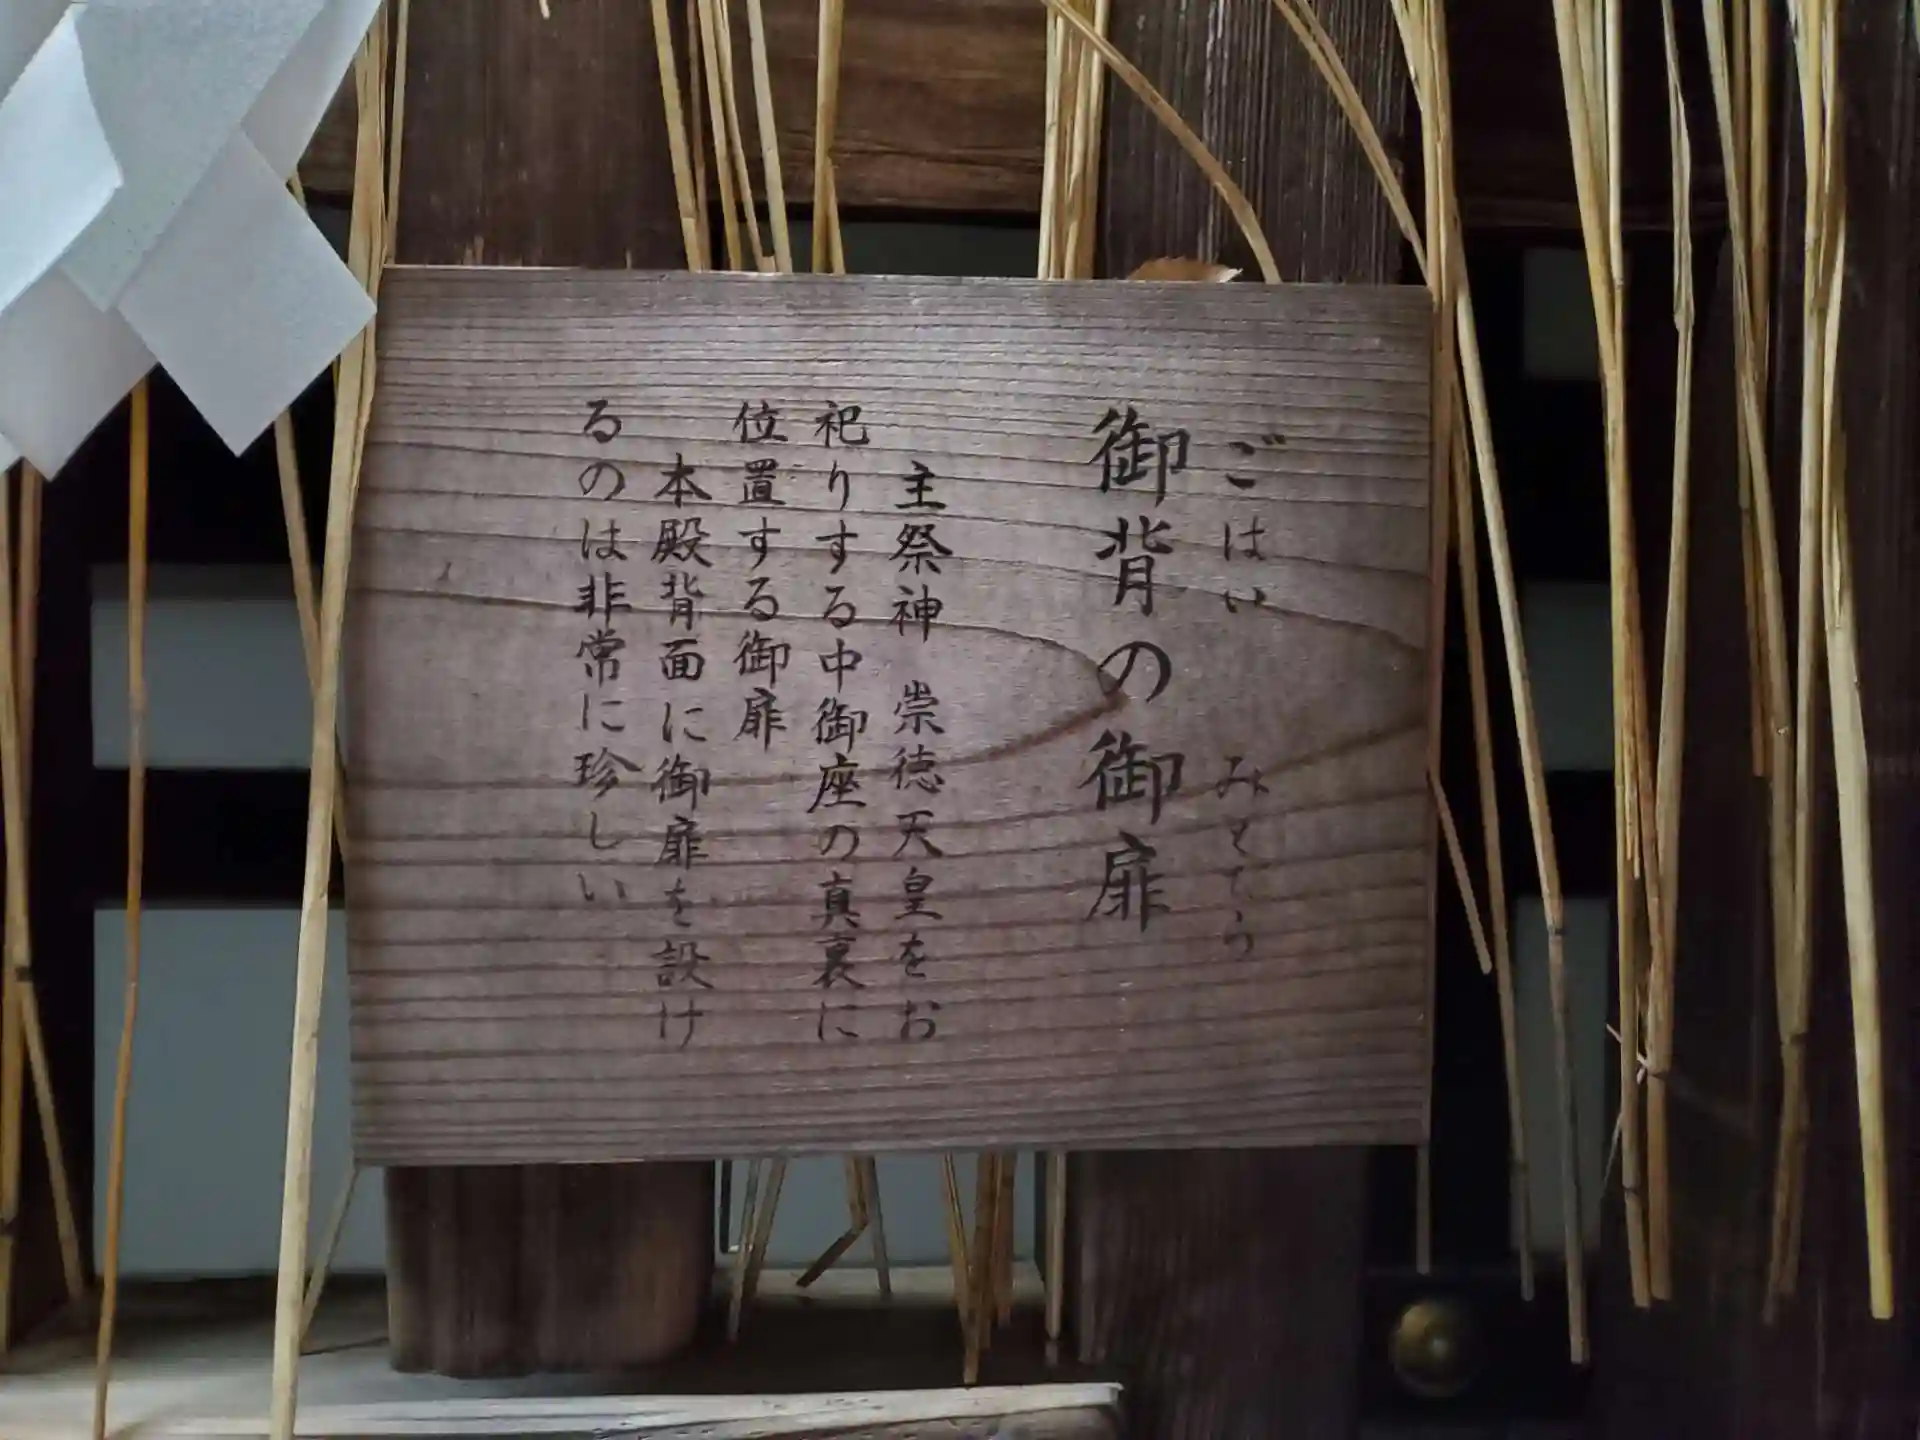 ごはい　みとびら
御背の御扉
主祭神　崇徳天皇をお
祀りする中御座の真裏に
位置する御扉
本殿背面に御扉を設け
るのは非常に珍しい